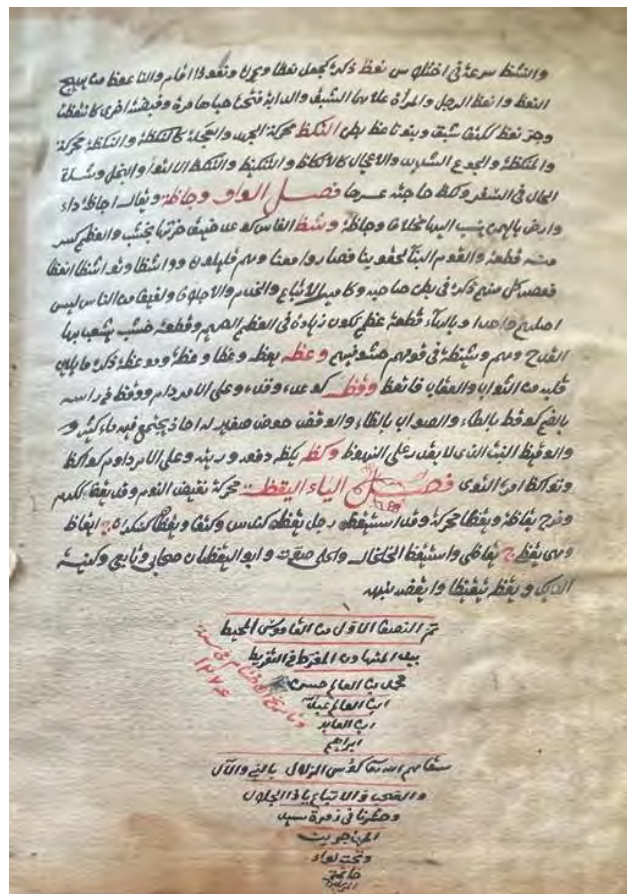 والنشظ سرعة في اختلاس نعظ ذكره كجعل نعظا ويحرك ونعوظا قام والناعظ ما يهيج
النعظ وانعظ الرجل والمرأة علاهما الشبق والدابة فتحت حياءها مرة وقبضته اخرى كانتعظت
وحر نعظ ككتف شبق وبنو ناعظ بطن النكظ محركة الجهد والعجلة كالنكظة والنكظة محركة
والمنكظة والجوع الشديد والاعجال كالانكاظ والتنكيظ والتنكظ الالتواء والبخل وشدة
الحال في السفر ونكظ حاجته عسرها فصل الواو وجاظة ويقال احاظة داء
وارض باليمن ينسب اليها مخلاف وحاظة وشظ الفاس كوعد ضيق خرتها بخشب والعظم كسر
منه قطعة والقوم الينا لحقوا بنا فصاروا معنا وهم قليلون وواشظا وتواشظا انعظا
فعصر كل منهم ذكره في بطن صاحبه وكامير الاتباع والخدم والاحلاف ولفيف من الناس ليس
اصلهم واحدا وبالهاء قطعة عظم تكون زيادة في العظم الصميم وقطعة خشب يشعب بها
القدح وهم وشيظة في قومهم حشو فيهم وعظه يعظه وعظا وعظة وموعظة ذكره ما يلين
قلبه من الثواب والعقاب فاتعظ وقظ كوعد وقذه وعلى الامر دام ووقظ في راسه
بالضم كوقط بالطاء والصواب بالطاء والوقظ حوض صغير له اخاذ يجتمع فيه ماء كثير
والوقيظ المثبت الذي لا يقدر على النهوض وكظ يكظه دفعه وزبنه وعلى الامر داوم كواكظ
وتواكظ امره التوى فصل الياء اليقظة محركة نقيض النوم وقد يقظ ككرم
وفرح يقاظة ويقظا محركة وقد استيقظ رجل يقظ كندس وكتف ويقظان كسكران ج ايقاظ
وهي يقظى ج يقاظى واستيقظ الخلخال والحلي صوت وابو اليقظان صحابي وتابعي وكنية
الديك ويقظه تيقيظا وايقظه نبهه
تم النصف الاول من القاموس المحيط
بيد المتهاون المفرط في التفريط
محمد بن العالم حسن
ابن العالم عبد الله
ابن العابد
ابراهيم
وتاريخ الاختتام في سنة
١٢٧٦
سقاهم الله تعالى كؤوس الزلال بالنبي والآل
والصحب والاتباع يا ذا الجلال
وحشرنا في زمرة سيد
المرسلين
وتحت لواء
خاتم